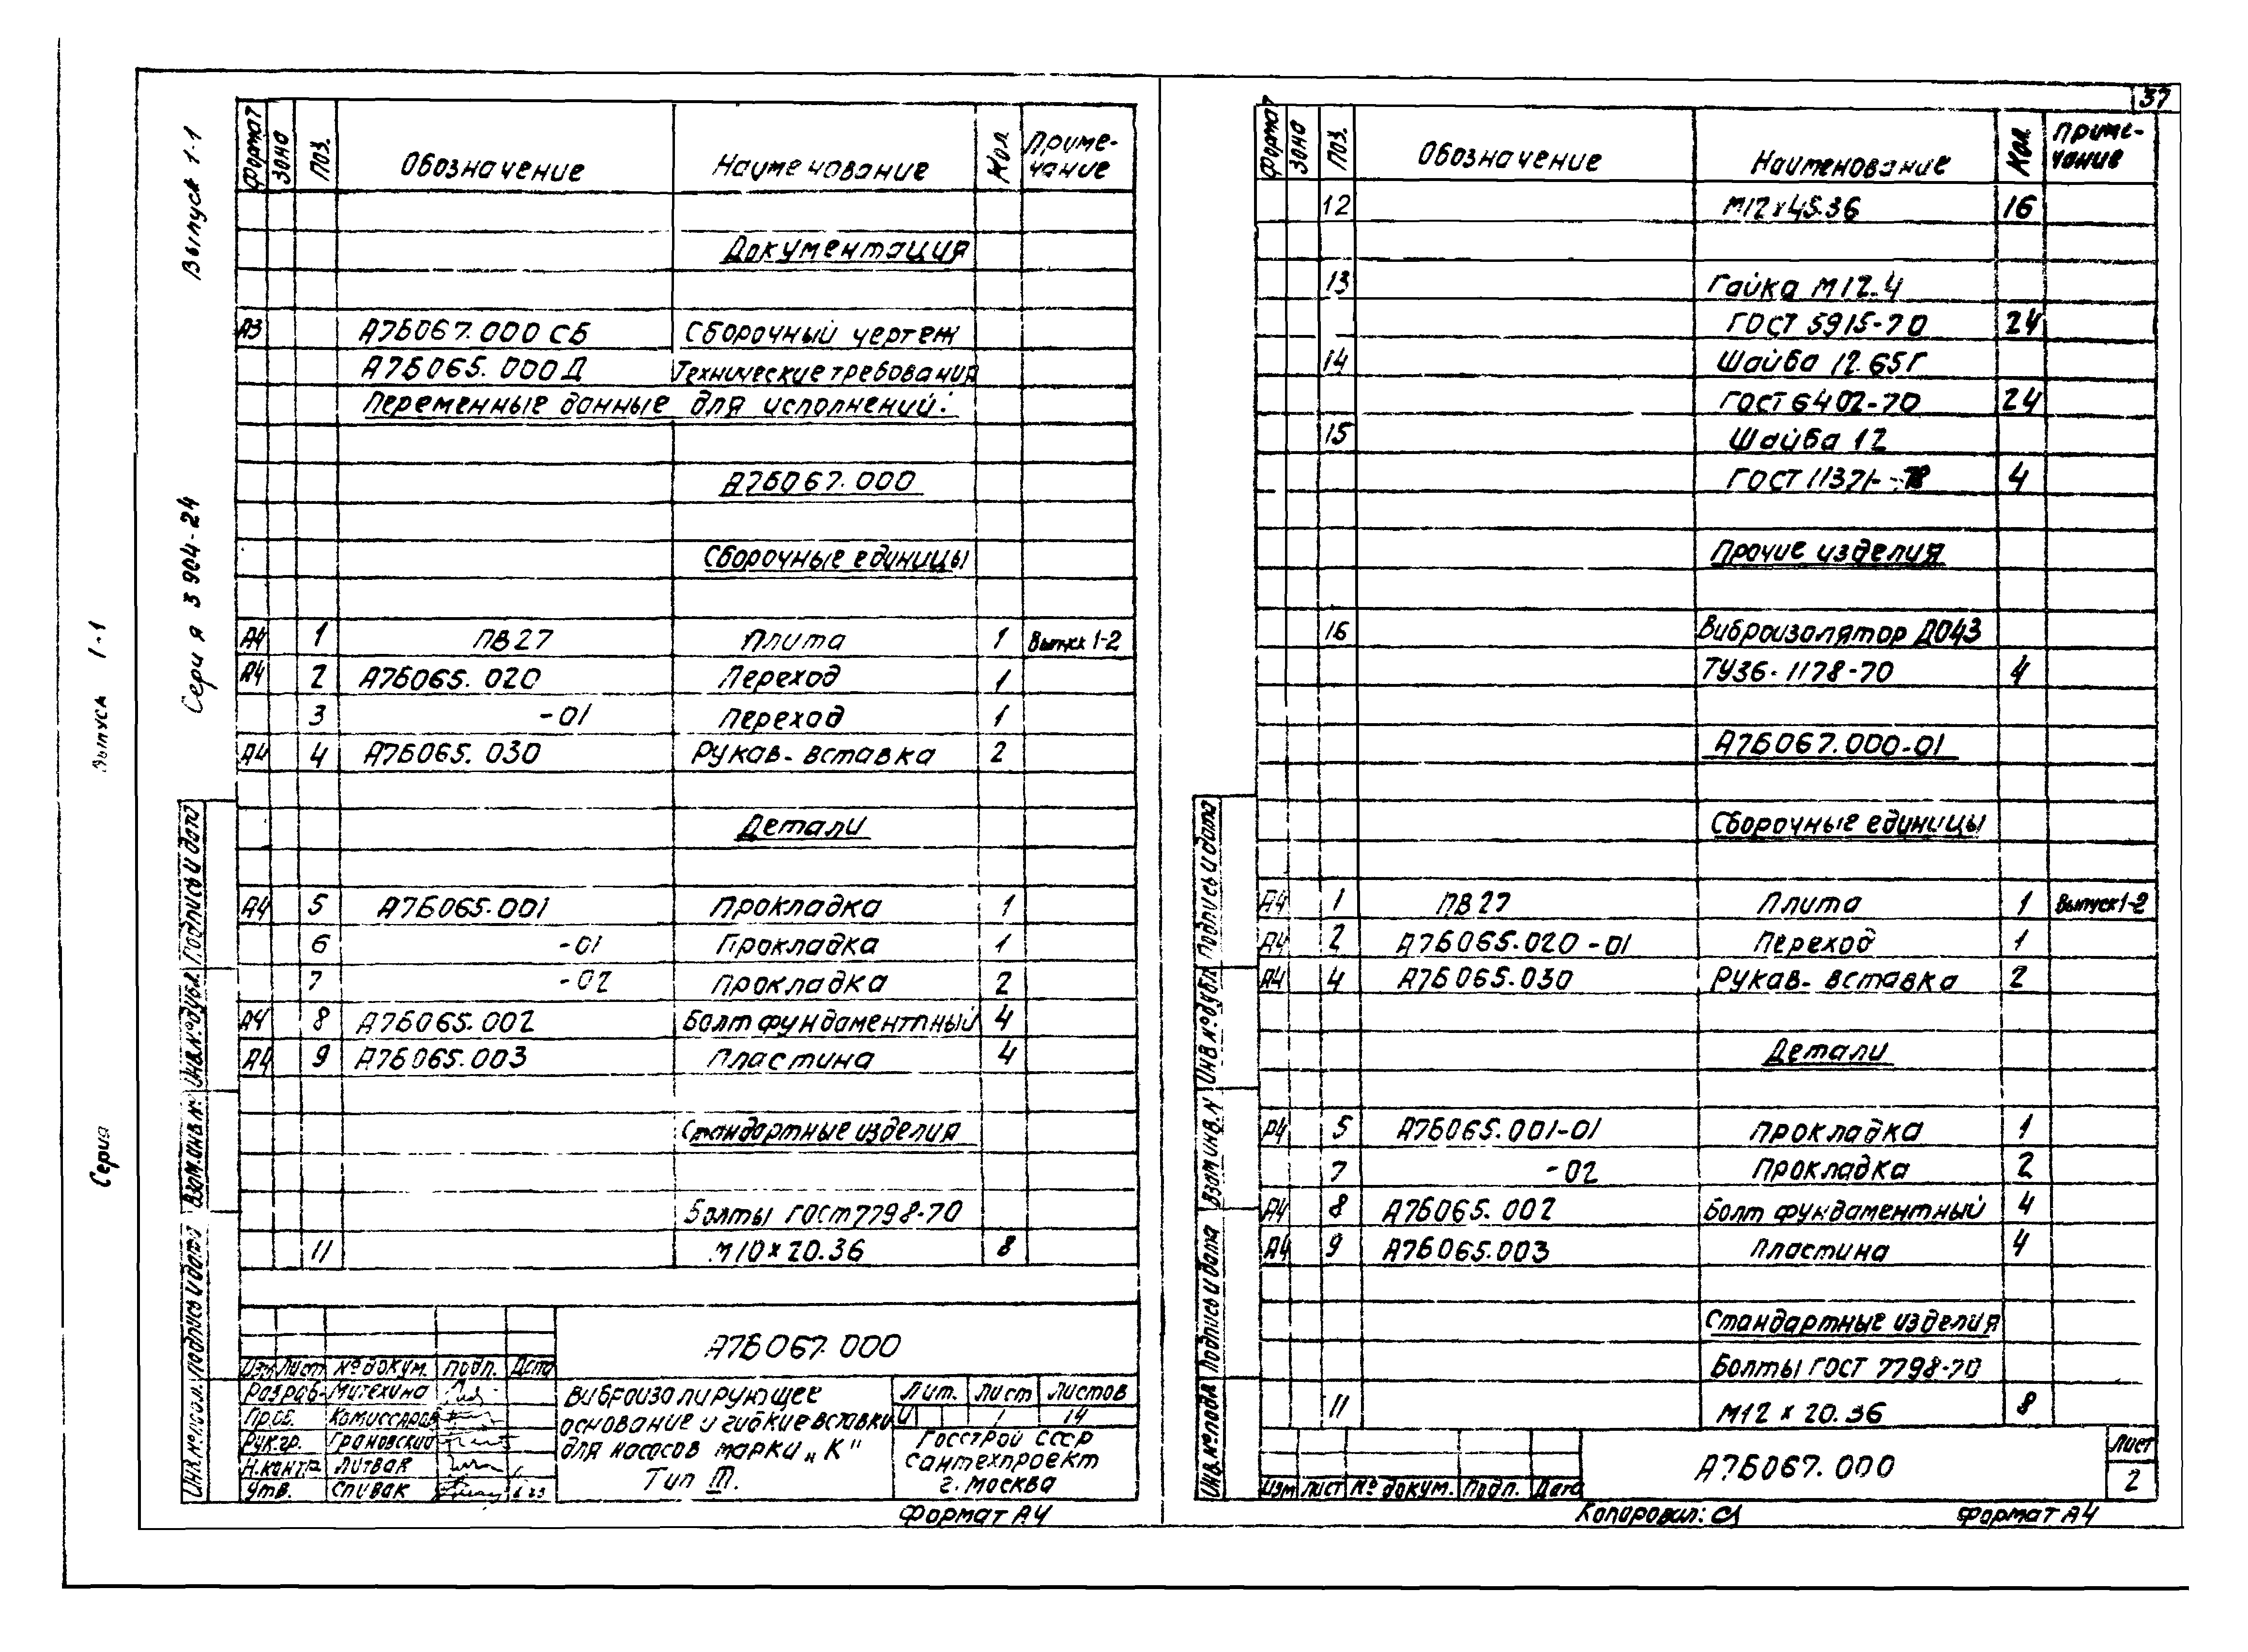 Выпуск 1-1
Серия 3 904-24
Выпуск 1-1
Серия
37
Формат Зона Поз. Обозначение Наименование Кол. Приме-
чание
Документация
А3 А7Б067.000 СБ Сборочный чертеж
А7Б065.000 Д Технические требования
Переменные данные для исполнений:
А7Б067.000
Сборочные единицы
А4 1 ПВ27 Плита 1 Выпуск 1-2
А4 2 А7Б065.020 Переход 1
3 -01 Переход 1
А4 4 А7Б065.030 Рукав-вставка 2
Детали
А4 5 А7Б065.001 Прокладка 1
6 -01 Прокладка 1
7 -02 Прокладка 2
А4 8 А7Б065.002 Болт фундаментный 4
А4 9 А7Б065.003 Пластина 4
Стандартные изделия
Болты ГОСТ 7798-70
11 М10×20.36 8
А7Б067.000
Изм Лист № докум. Подп. Дата
Разраб. Митехина
Пров. Комиссаров
Рук.гр. Грановский
Н.контр Литвак
Утв. Спивак
Виброизолирующее
основание и гибкие вставки
для насосов марки „К"
Тип III.
Лит. Лист Листов
И 1 14
Госстрой СССР
Сантехпроект
г. Москва
Формат А4
Инв.№ подл. Подпись и дата Взам.инв.№ Инв.№ дубл. Подпись и дата
Формат Зона Поз. Обозначение Наименование Кол. Приме-
чание
12 М12×45.36 16
13 Гайка М12.4
ГОСТ 5915-70 24
14 Шайба 12.65Г
ГОСТ 6402-70 24
15 Шайба 12
ГОСТ 11371-78 4
Прочие изделия
16 Виброизолятор ДО43
ТУ36-1178-70 4
А7Б067.000-01
Сборочные единицы
А4 1 ПВ27 Плита 1 Выпуск 1-2
А4 2 А7Б065.020-01 Переход 1
А4 4 А7Б065.030 Рукав-вставка 2
Детали
А4 5 А7Б065.001-01 Прокладка 1
7 -02 Прокладка 2
А4 8 А7Б065.002 Болт фундаментный 4
А4 9 А7Б065.003 Пластина 4
Стандартные изделия
Болты ГОСТ 7798-70
11 М12×20.36 8
Изм Лист № докум. Подп. Дата
А7Б067.000
Лист
2
Инв.№ подл. Подпись и дата Взам инв.№ Инв.№ дубл. Подпись и дата
Копировал: Формат А4